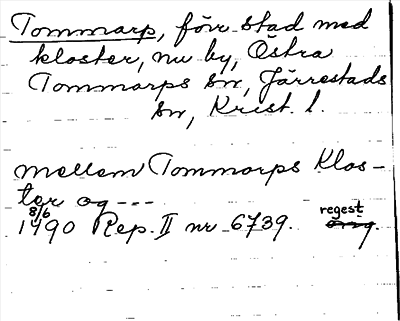 Tommarp, förr stad med
kloster, nu by, Östra
Tommarps sn, Järrestads
hd, Krist. l.
mellem Tommarps Klos-
ter og ---
8/6
1490 Rep. II nr 6739. regest
orig.